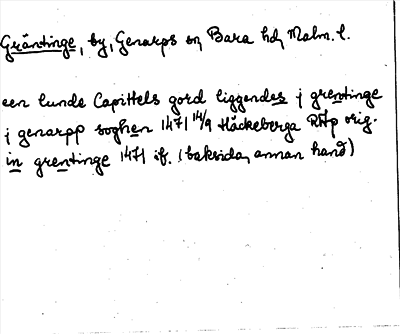 Gräntinge, by, Genarps sn, Bara hd, Malm. l.
een lunde Capittels gord liggendes j grentinge
j genarpp soghen 1471 14/9 Häckeberga RAp orig.
in grentinge 1471 if. (baksidan, annan hand)